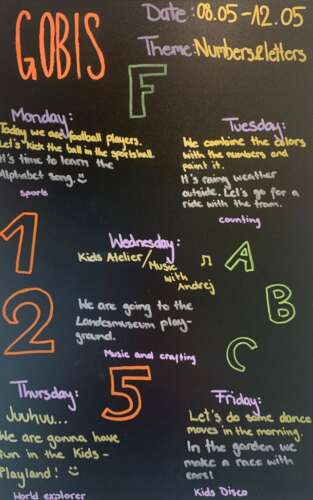 GOBIS
Date: 08.05-12.05
Theme: Numbers & letters
F
Monday:
Today we are football players.
Let's kick the ball in the sportshall.
It's time to learn the
Alphabet song.
sports
Tuesday:
We combine the colors
with the numbers and
paint it.
It's rainig weather
outside. Let's go for a
ride with the tram.
counting
1
2
5
Wednesday:
Kids Atelier/Music
with
Andrej
We are going to the
Landesmuseum play-
ground.
Music and crafting
A
B
C
Thursday:
Juuhuu...
We are gonna have
fun in the Kids-
Playland!
World explorer
Friday:
Let's do some dance
moves in the morning.
In the garden we
make a race with
cars!
Kids Disco